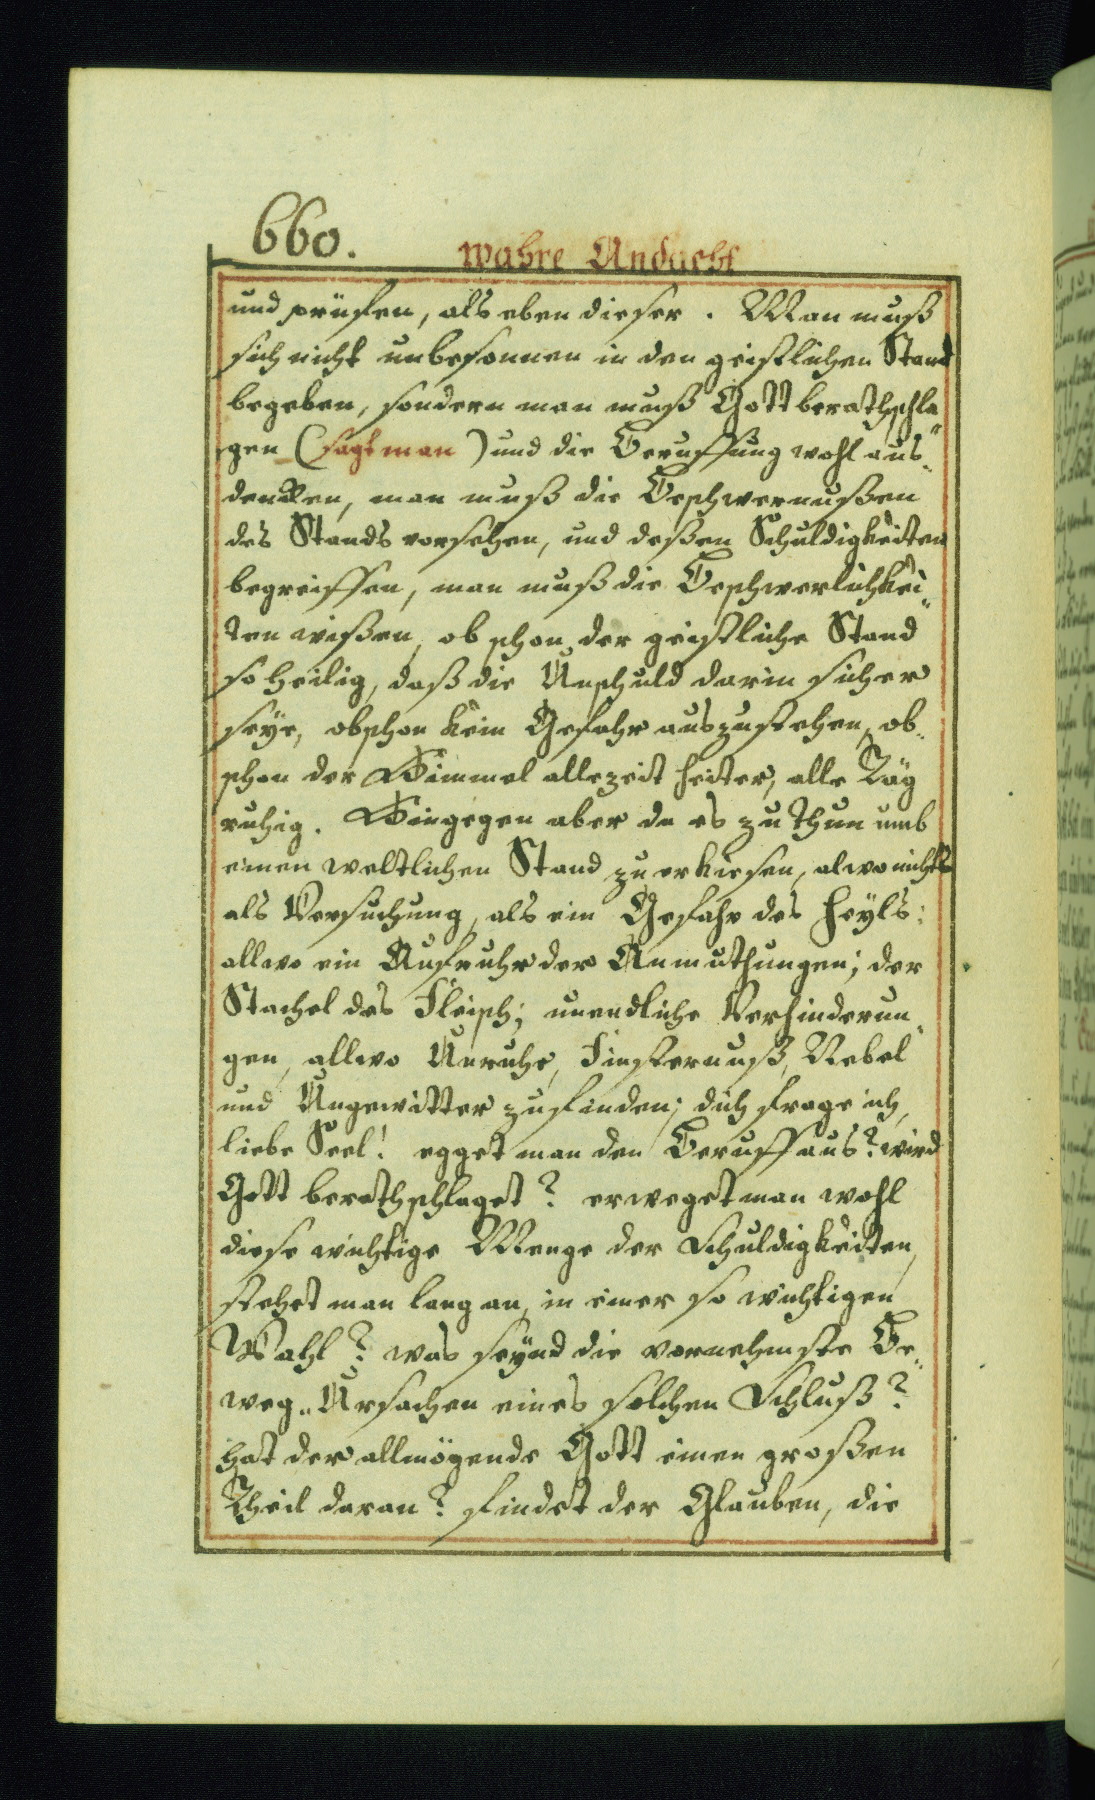 660.
wahre Andacht
und prüfen, als eben dieser. Man muß
sich nicht unbesonnen in den geistlichen Stand
begeben, sondern man muß Gott berathschla„
gen (sagt man) und die Beruffung wohl aus„
dencken, man muß die Beschwernußen
des Stands vorsehen, und deßen Schuldigkeiten
begreiffen, man muß die Beschwerlichkei„
ten wißen, ob schon der geistliche Stand
so heilig, daß die Unschuld darin sicher
seye, obschon kein Gefahr auszustehen, ob„
schon der Himmel allezeit heiter, alle Täg
ruhig. Hingegen aber da es zu thun umb
einen weltlichen Stand zu erkiesen, alwo nichts
als Versuchung, als ein Gefahr des Heyls:
allwo ein Aufruhr der Anmuthungen; der
Stachel des Fleisch; unendliche Verhinderun„
gen, allwo Unruhe, Finsternuß, Nebel
und Ungewitter zufinden; dich frage ich,
liebe Seel! egget man den Beruff aus? wird
Gott berathschlaget? erweget man wohl
diese wichtige Menge der Schuldigkeiten,
stehet man lang an, in einer so wichtigen
Wahl? was seynd die vornehmste Be„
weg„Ursachen eines solchen Schluß?
hat der allmögende Gott einen großen
Theil daran? findet der Glauben, die